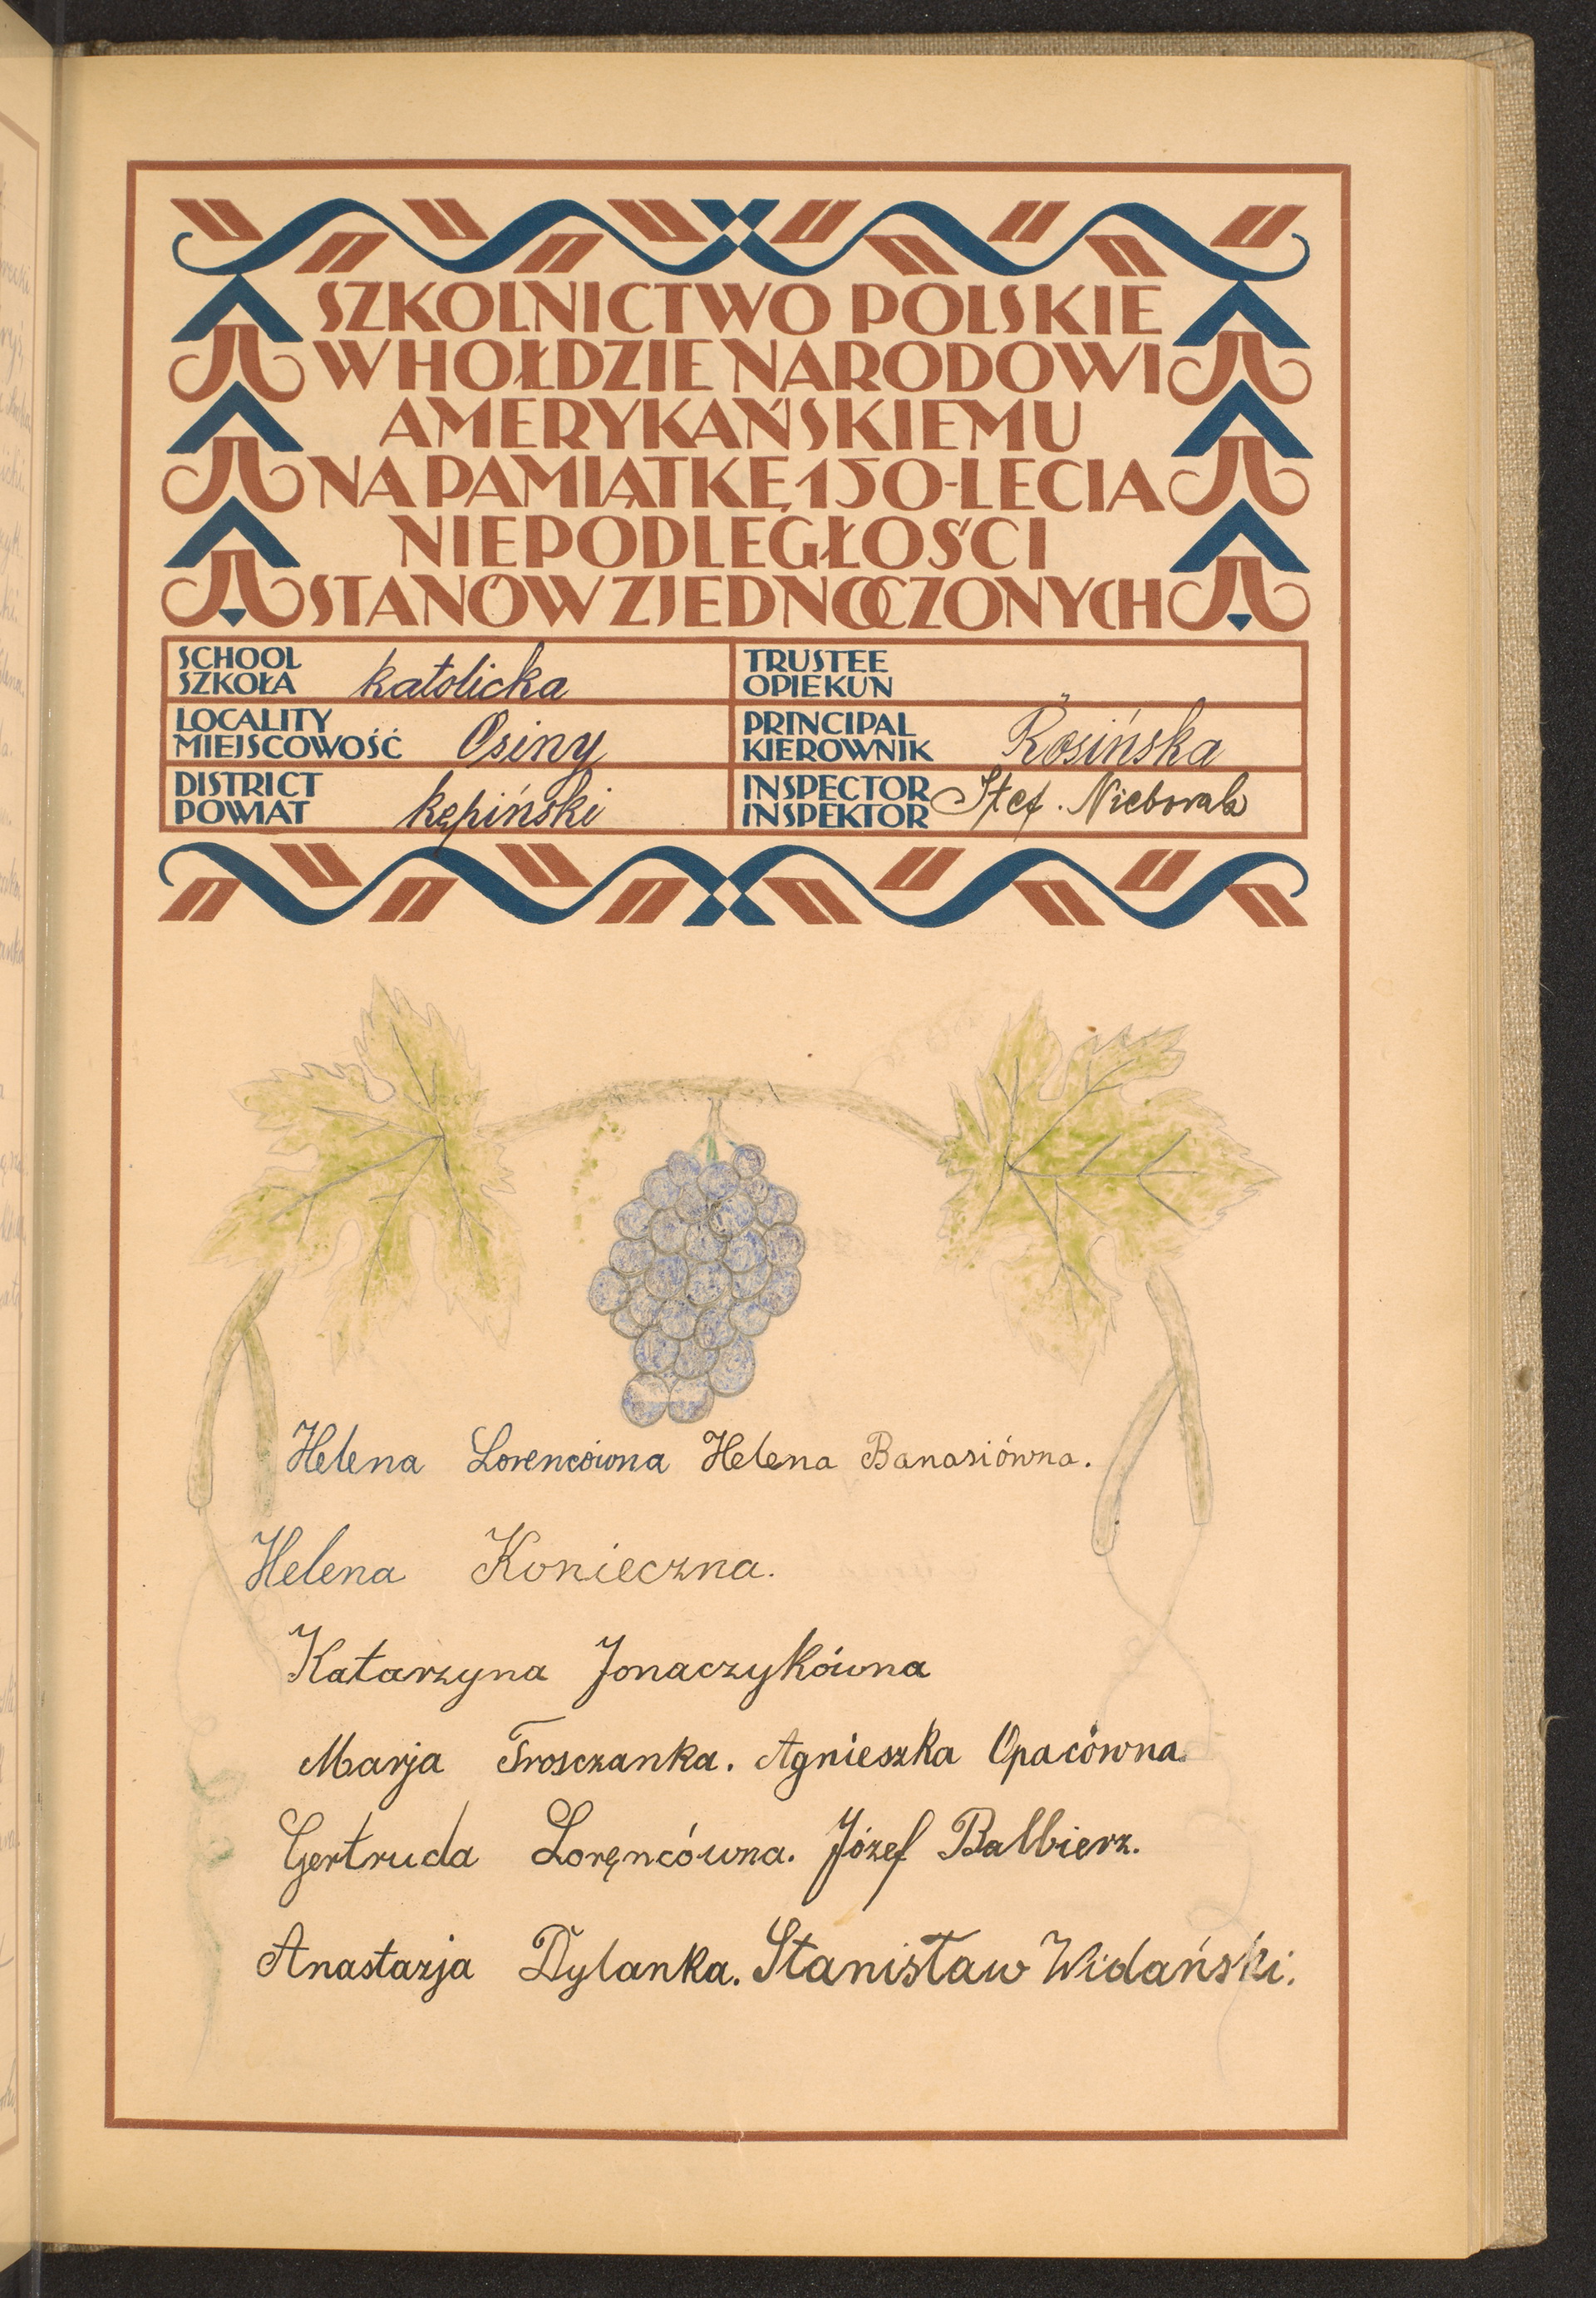 SZKOLNICTWO POLSKIE
W HOŁDZIE NARODOWI
AMERYKAŃSKIEMU
NA PAMIĄTKĘ 150-LECIA
NIEPODLEGŁOŚCI
STANÓW ZJEDNOCZONYCH
SCHOOL
SZKOŁA katolicka
TRUSTEE
OPIEKUN
LOCALITY
MIEJSCOWOŚĆ Osiny
PRINCIPAL
KIEROWNIK Rosińska
DISTRICT
POWIAT kępiński
INSPECTOR
INSPEKTOR Stef. Nieborak
Helena Lorencówna Helena Banasiówna.
Helena Konieczna.
Katarzyna Jonaczykówna
Marja Trosczanka. Agnieszka Opacówna
Gertruda Loręncówna. Józef Balbierz.
Anastazja Dylanka. Stanisław Widański.